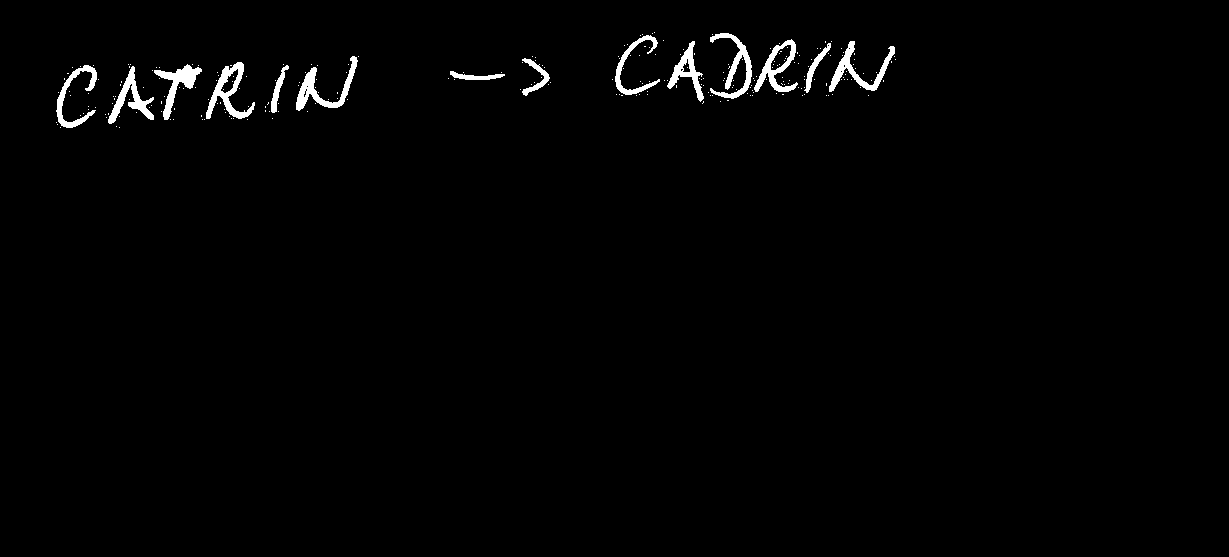 CATRIN -> CADRIN